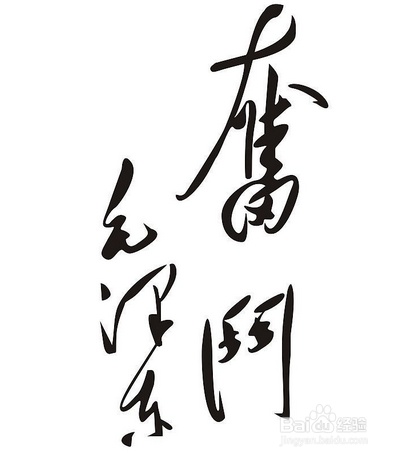 奮鬥
毛泽东
Baidu 经验
jingyan.baidu.com